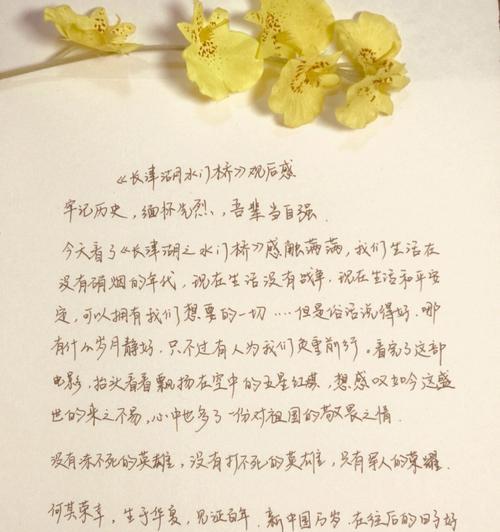 《长津湖水门桥》观后感
牢记历史，缅怀先烈，吾辈当自强.
今天看了《长津湖之水门桥》感触满满，我们生活在
没有硝烟的年代，现在生活没有战争，现在生活和平安
定，可以拥有我们想要的一切....但是俗话说得好.哪
有什么岁月静好.只不过有人为我们负重前行。看完了这部
电影，抬头看看飘扬在空中的五星红旗，想感叹如今这盛
世的来之不易，心中也多了一份对祖国的敬畏之情.
没有冻不死的英雄，没有打不死的英雄，只有军人的荣耀.
何其荣幸，生于华夏，见证百年.新中国万岁.在往后的日子好